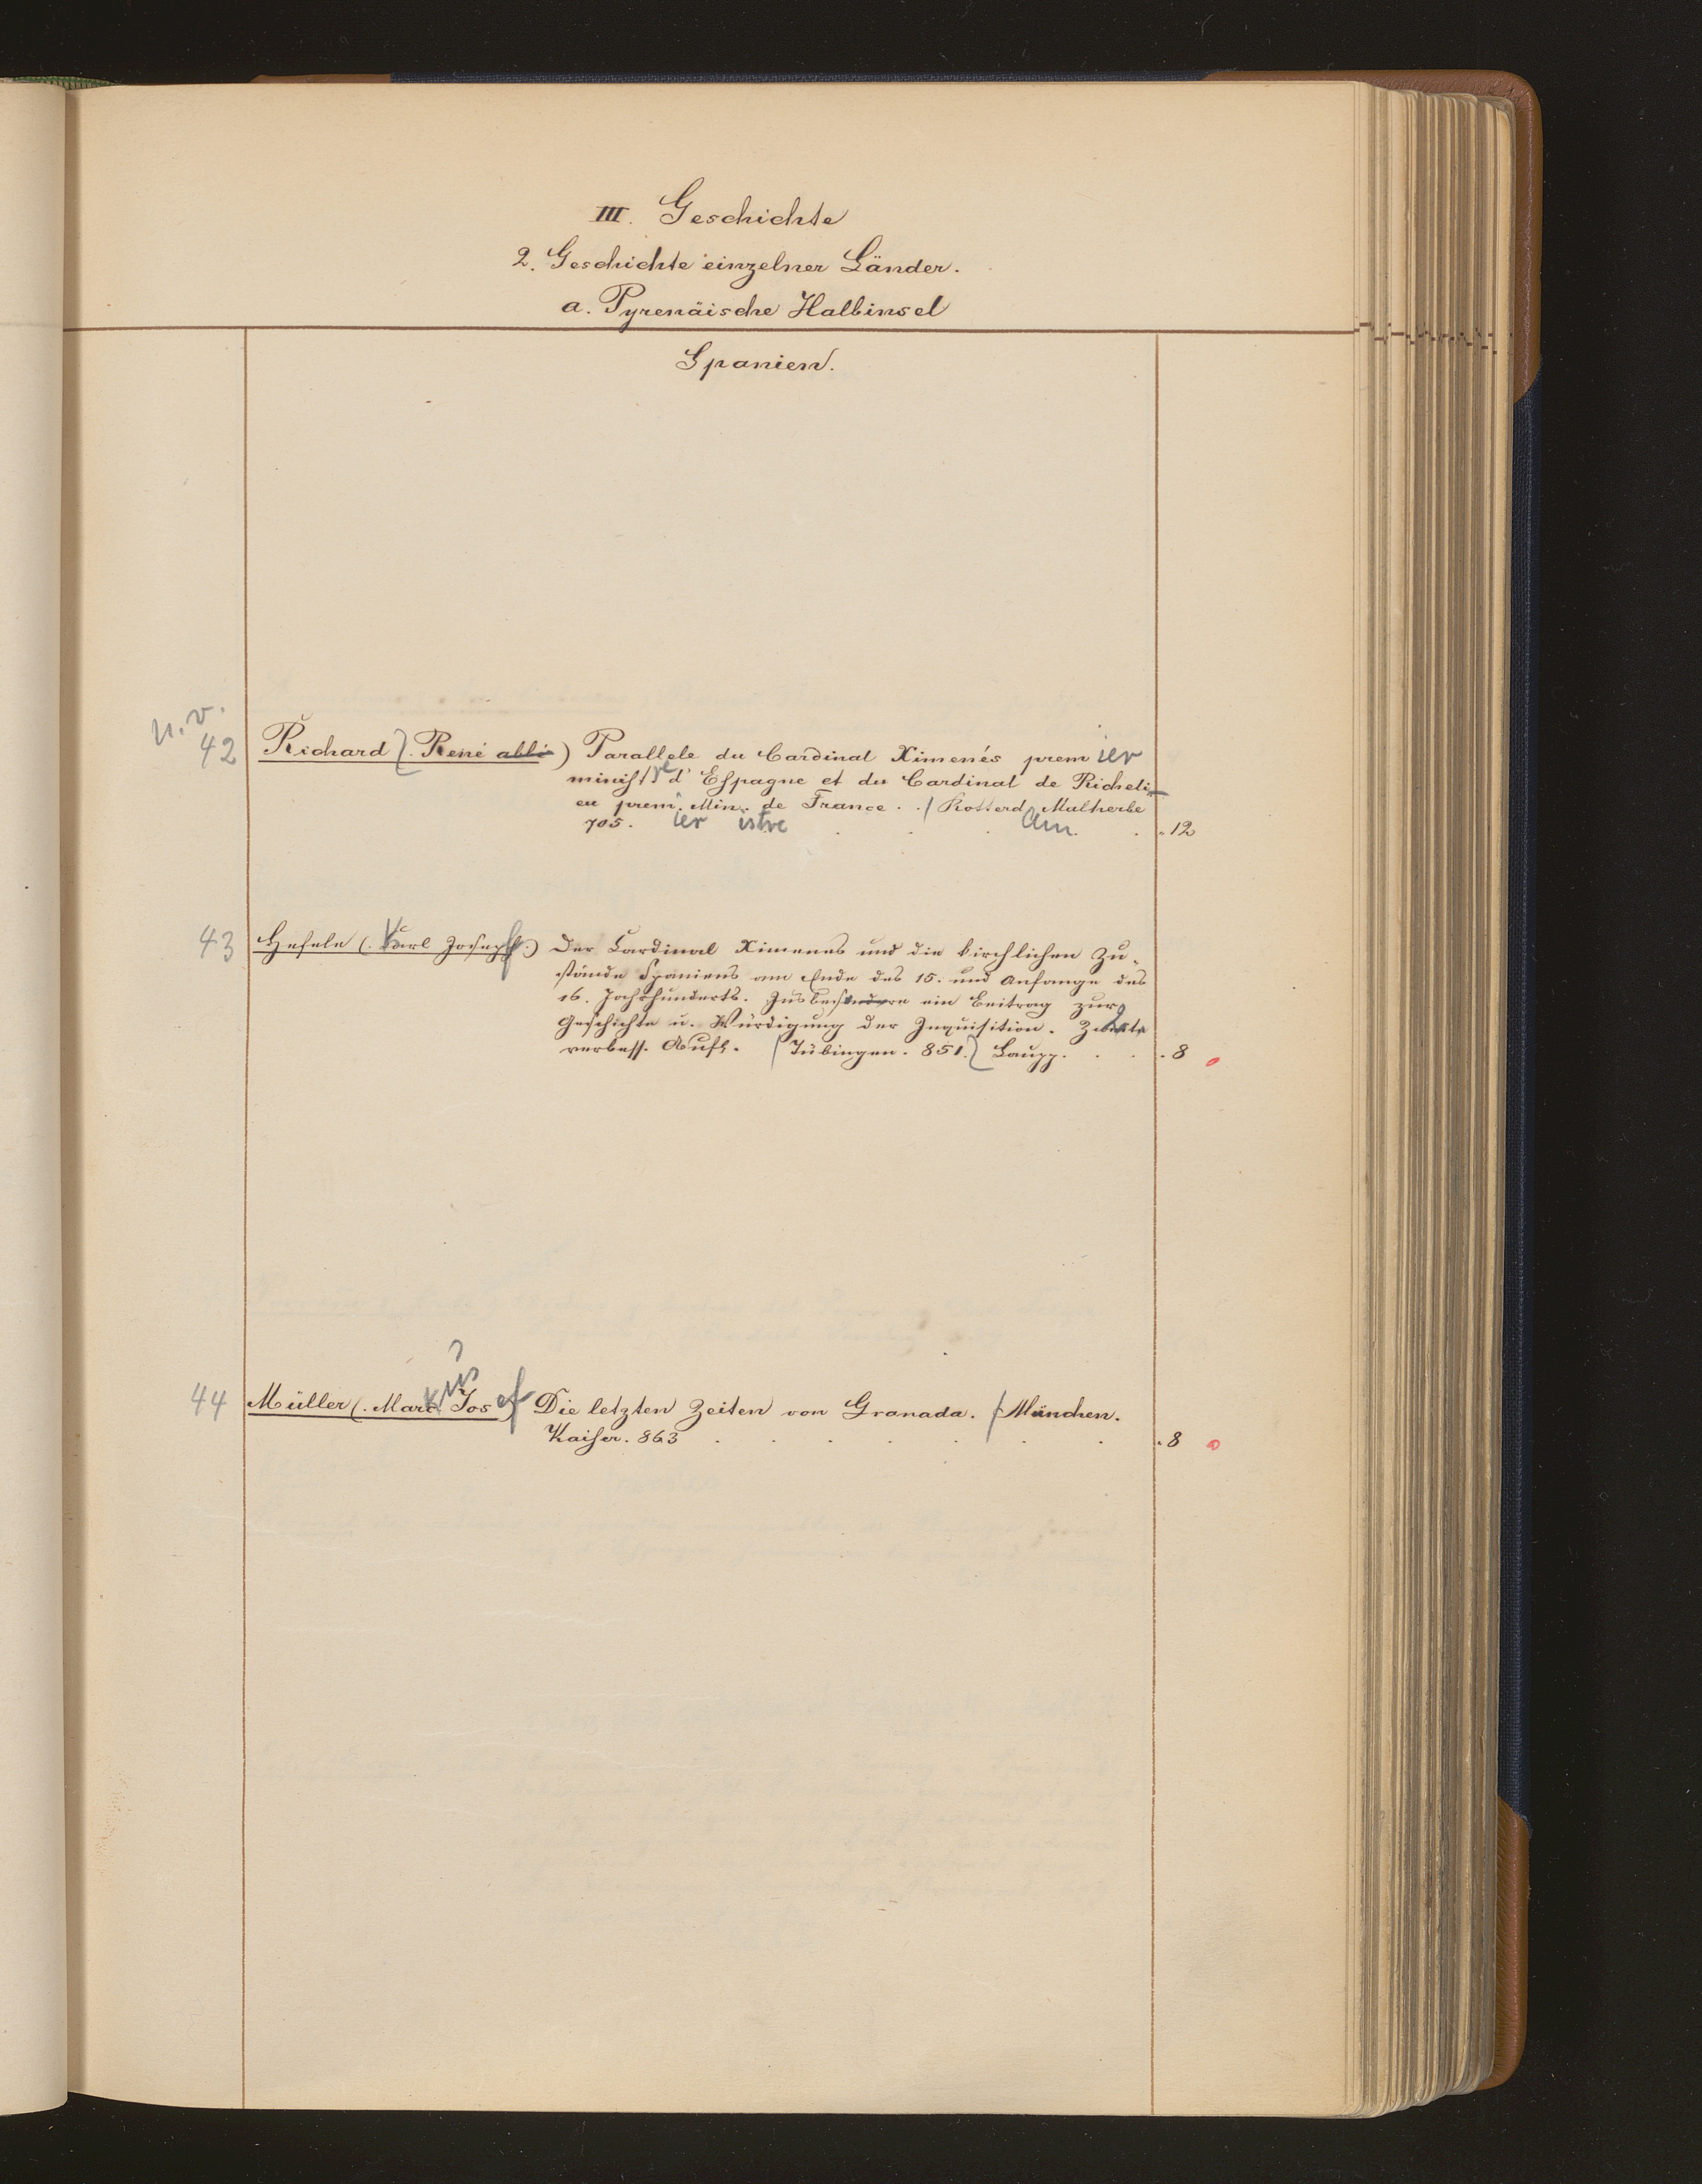 III. Geschichte
2. Geschichte einzelner Länder.
a. Pyrenäische Halbinsel
Spanien.
n. v.
42 Richard (. René abbé) Parallele du Cardinal Ximenés premier
ministre d'Espagne et du Cardinal de Richeli-
eu prem. Min. de France. . / Rotterd Malherbe
705. ier istre am . 12
43 Hefele (. Karl Joseph.) Der Cardinal Ximenes und die kirchlichen Zu-
stände Spaniens am Ende des 15. und Anfange des
16. Jahrhunderts. Insbesondere ein Beitrag zur
Geschichte u. Würdigung der Inquisition. Zweite
verbess. Aufl. (Tübingen. 851.) Laupp. . 8
44 Müller (. Marc Jos ef Die letzten Zeiten von Granada. / München.
kus ?
Kaiser. 863 . 8